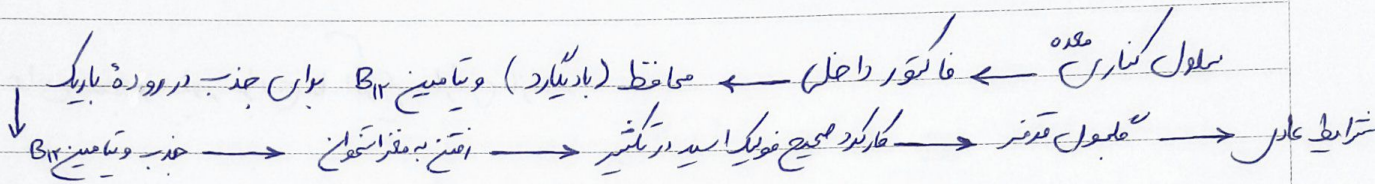 سلول کناری معده ← فاکتور داخلی ← محافظ (بادیگارد) ویتامین B۱۲ برای جذب در رودهٔ باریک ↓
شرایط عادی ← گلبول قرمز ← کارکرد صحیح فولیک اسید در تکثیر ← رفتن به مغز استخوان ← جذب ویتامین B۱۲